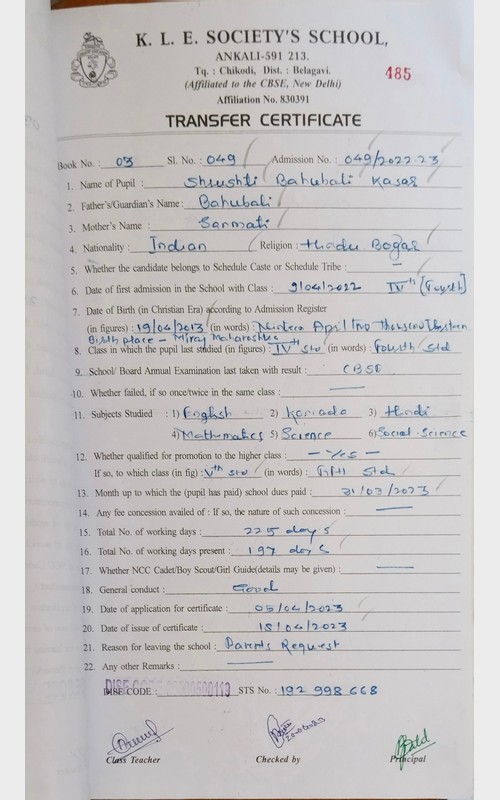 K. L. E. SOCIETY'S SCHOOL,
ANKALI-591 213.
Tq. : Chikodi, Dist. : Belagavi.
(Affiliated to the CBSE, New Delhi)
485
Affiliation No. 830391
TRANSFER CERTIFICATE
Book No. : 03 Sl. No. : 049 Admission No. : 049/2022-23
1. Name of Pupil : Shrushti Bahubali Kasar
2. Father's/Guardian's Name : Bahubali
3. Mother's Name : Sanmati
4. Nationality : Indian Religion : Hindu Bogar
5. Whether the candidate belongs to Schedule Caste or Schedule Tribe : —
6. Date of first admission in the School with Class : 9/04/2022 IVth [Fourth]
7. Date of Birth (in Christian Era) according to Admission Register
(in figures) : 19/04/2013 (in words) : April Two Thousand
Birth place - Miraj Maharashtra
8. Class in which the pupil last studied (in figures) : IVth Std (in words) : Fourth Std
9. School/ Board Annual Examination last taken with result : CBSE
10. Whether failed, if so once/twice in the same class : —
11. Subjects Studied : 1) English 2) Kannada 3) Hindi
4) Mathematics 5) Science 6) Social-Science
12. Whether qualified for promotion to the higher class : — Yes —
If so, to which class (in fig) : Vth Std (in words) : Fifth Std
13. Month up to which the (pupil has paid) school dues paid : 31/03/2023
14. Any fee concession availed of : If so, the nature of such concession : —
15. Total No. of working days : 225 days
16. Total No. of working days present : 197 days
17. Whether NCC Cadet/Boy Scout/Girl Guide(details may be given) : —
18. General conduct : Good
19. Date of application for certificate : 05/04/2023
20. Date of issue of certificate : 18/04/2023
21. Reason for leaving the school : Parents Request
22. Any other Remarks : —
DISE CODE : STS No. : 192 998 668
Class Teacher Checked by Principal